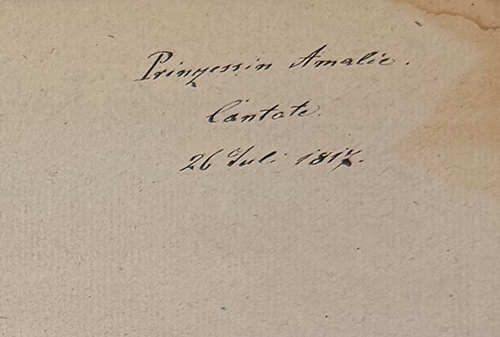 Prinzessin Amalie.
Cantate.
26 Juli 1817.